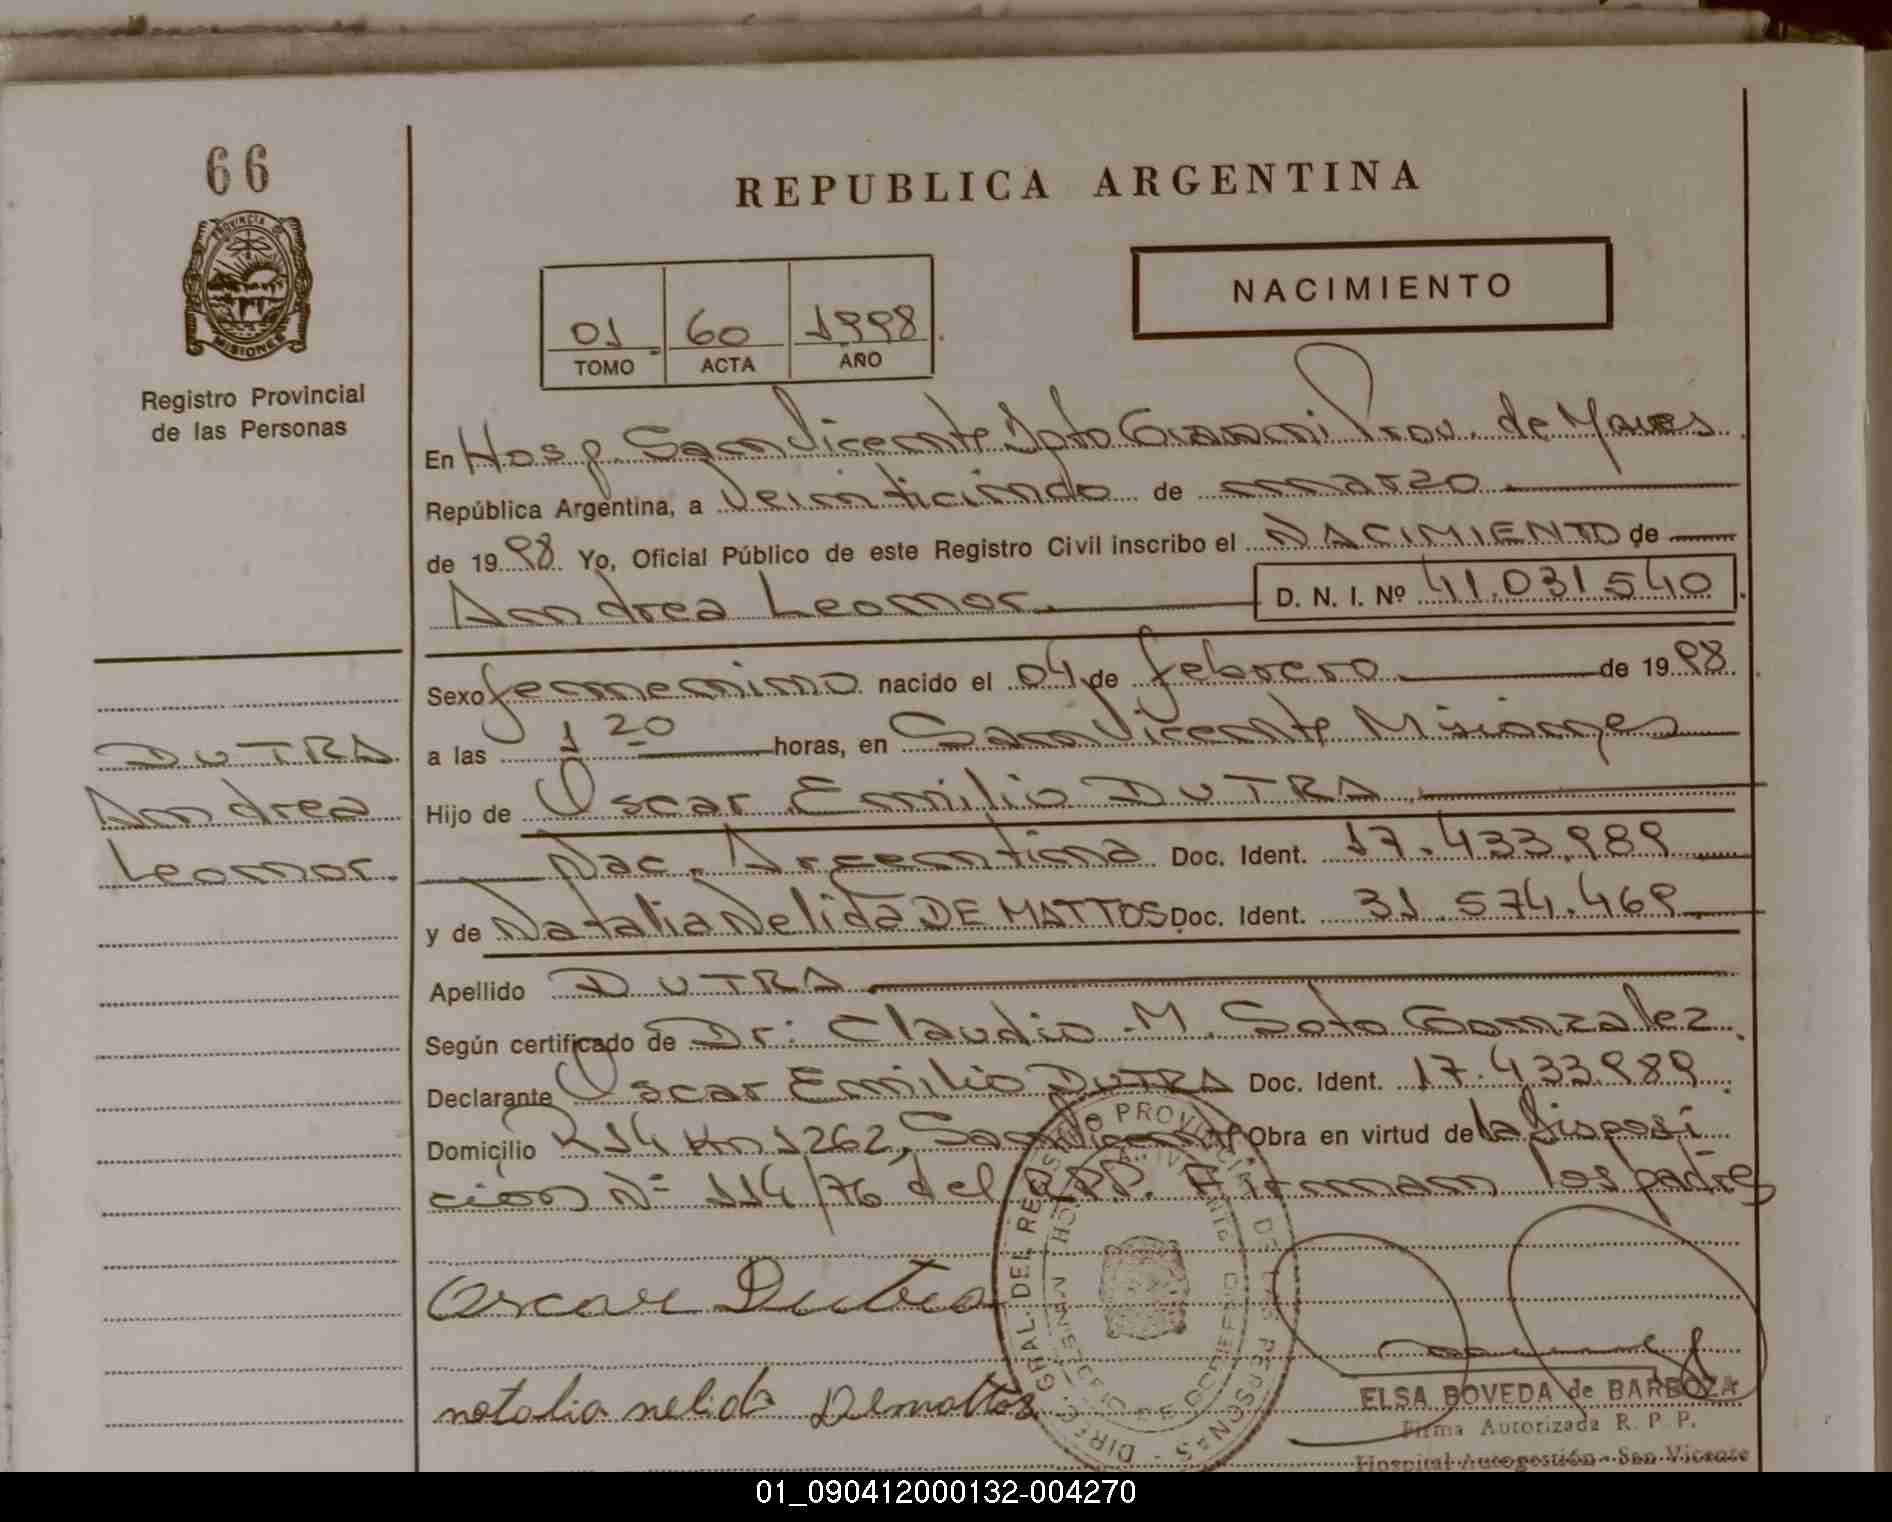 66
PROVINCIA DE
MISIONES
Registro Provincial
de las Personas
REPUBLICA ARGENTINA
NACIMIENTO
01 60 1998
TOMO ACTA AÑO
En Hosp. San Vicente Dpto Guarani Prov. de Mnes
República Argentina, a veinticinco de marzo
de 1998 Yo, Oficial Público de este Registro Civil inscribo el NACIMIENTO de
Andrea Leonor D. N. I. Nº 41.031540
Sexo femenino nacido el 04 de febrero de 1998
a las 1 20 horas, en San Vicente Misiones
Hijo de Oscar Emilio DUTRA
Nac. Argentina Doc. Ident. 17.433.989
y de Natalia Nelida DE MATTOS Doc. Ident. 31.574.469
Apellido DUTRA
Según certificado de Dr: Claudio M. Soto Gonzalez
Declarante Oscar Emilio DUTRA Doc. Ident. 17.433.989
Domicilio R14 Km 1262, San Vicente Obra en virtud de la Disposi
ción Nº 114/76 del R.P.P. Firman los padres
DUTRA
Andrea
Leonor.
Oscar Dutra
natalia nelida Demattos
ELSA BOVEDA de BARBOZA
Firma Autorizada R. P. P.
Hospital Autogestión - San Vicente
01_090412000132-004270